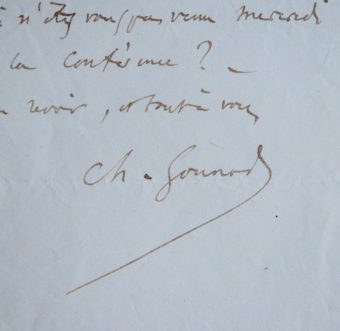 n'êtes vous pas venu mercredi
la conférence ? _
revoir, et tout à vous
Ch. Gounod